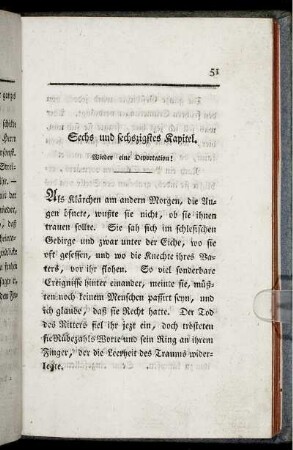 51
Sechs und sechszigstes Kapitel.
Wieder eine Deportation!
Als Klärchen am andern Morgen, die Au-
gen öfnete, wußte sie nicht, ob sie ihnen
trauen sollte. Sie sah sich im schlesischen
Gebirge und zwar unter der Eiche, wo sie
oft gesessen, und wo die Knechte ihres Va-
ters, vor ihr flohen. So viel sonderbare
Ereignisse hinter einander, meinte sie, müß-
ten noch keinem Menschen passirt seyn, und
ich glaube, daß sie Recht hatte. Der Tod
des Ritters fiel ihr jezt ein, doch trösteten
sie Rübezahls Worte und sein Ring an ihrem
Finger, der die Leerheit des Traums wider-
legte.